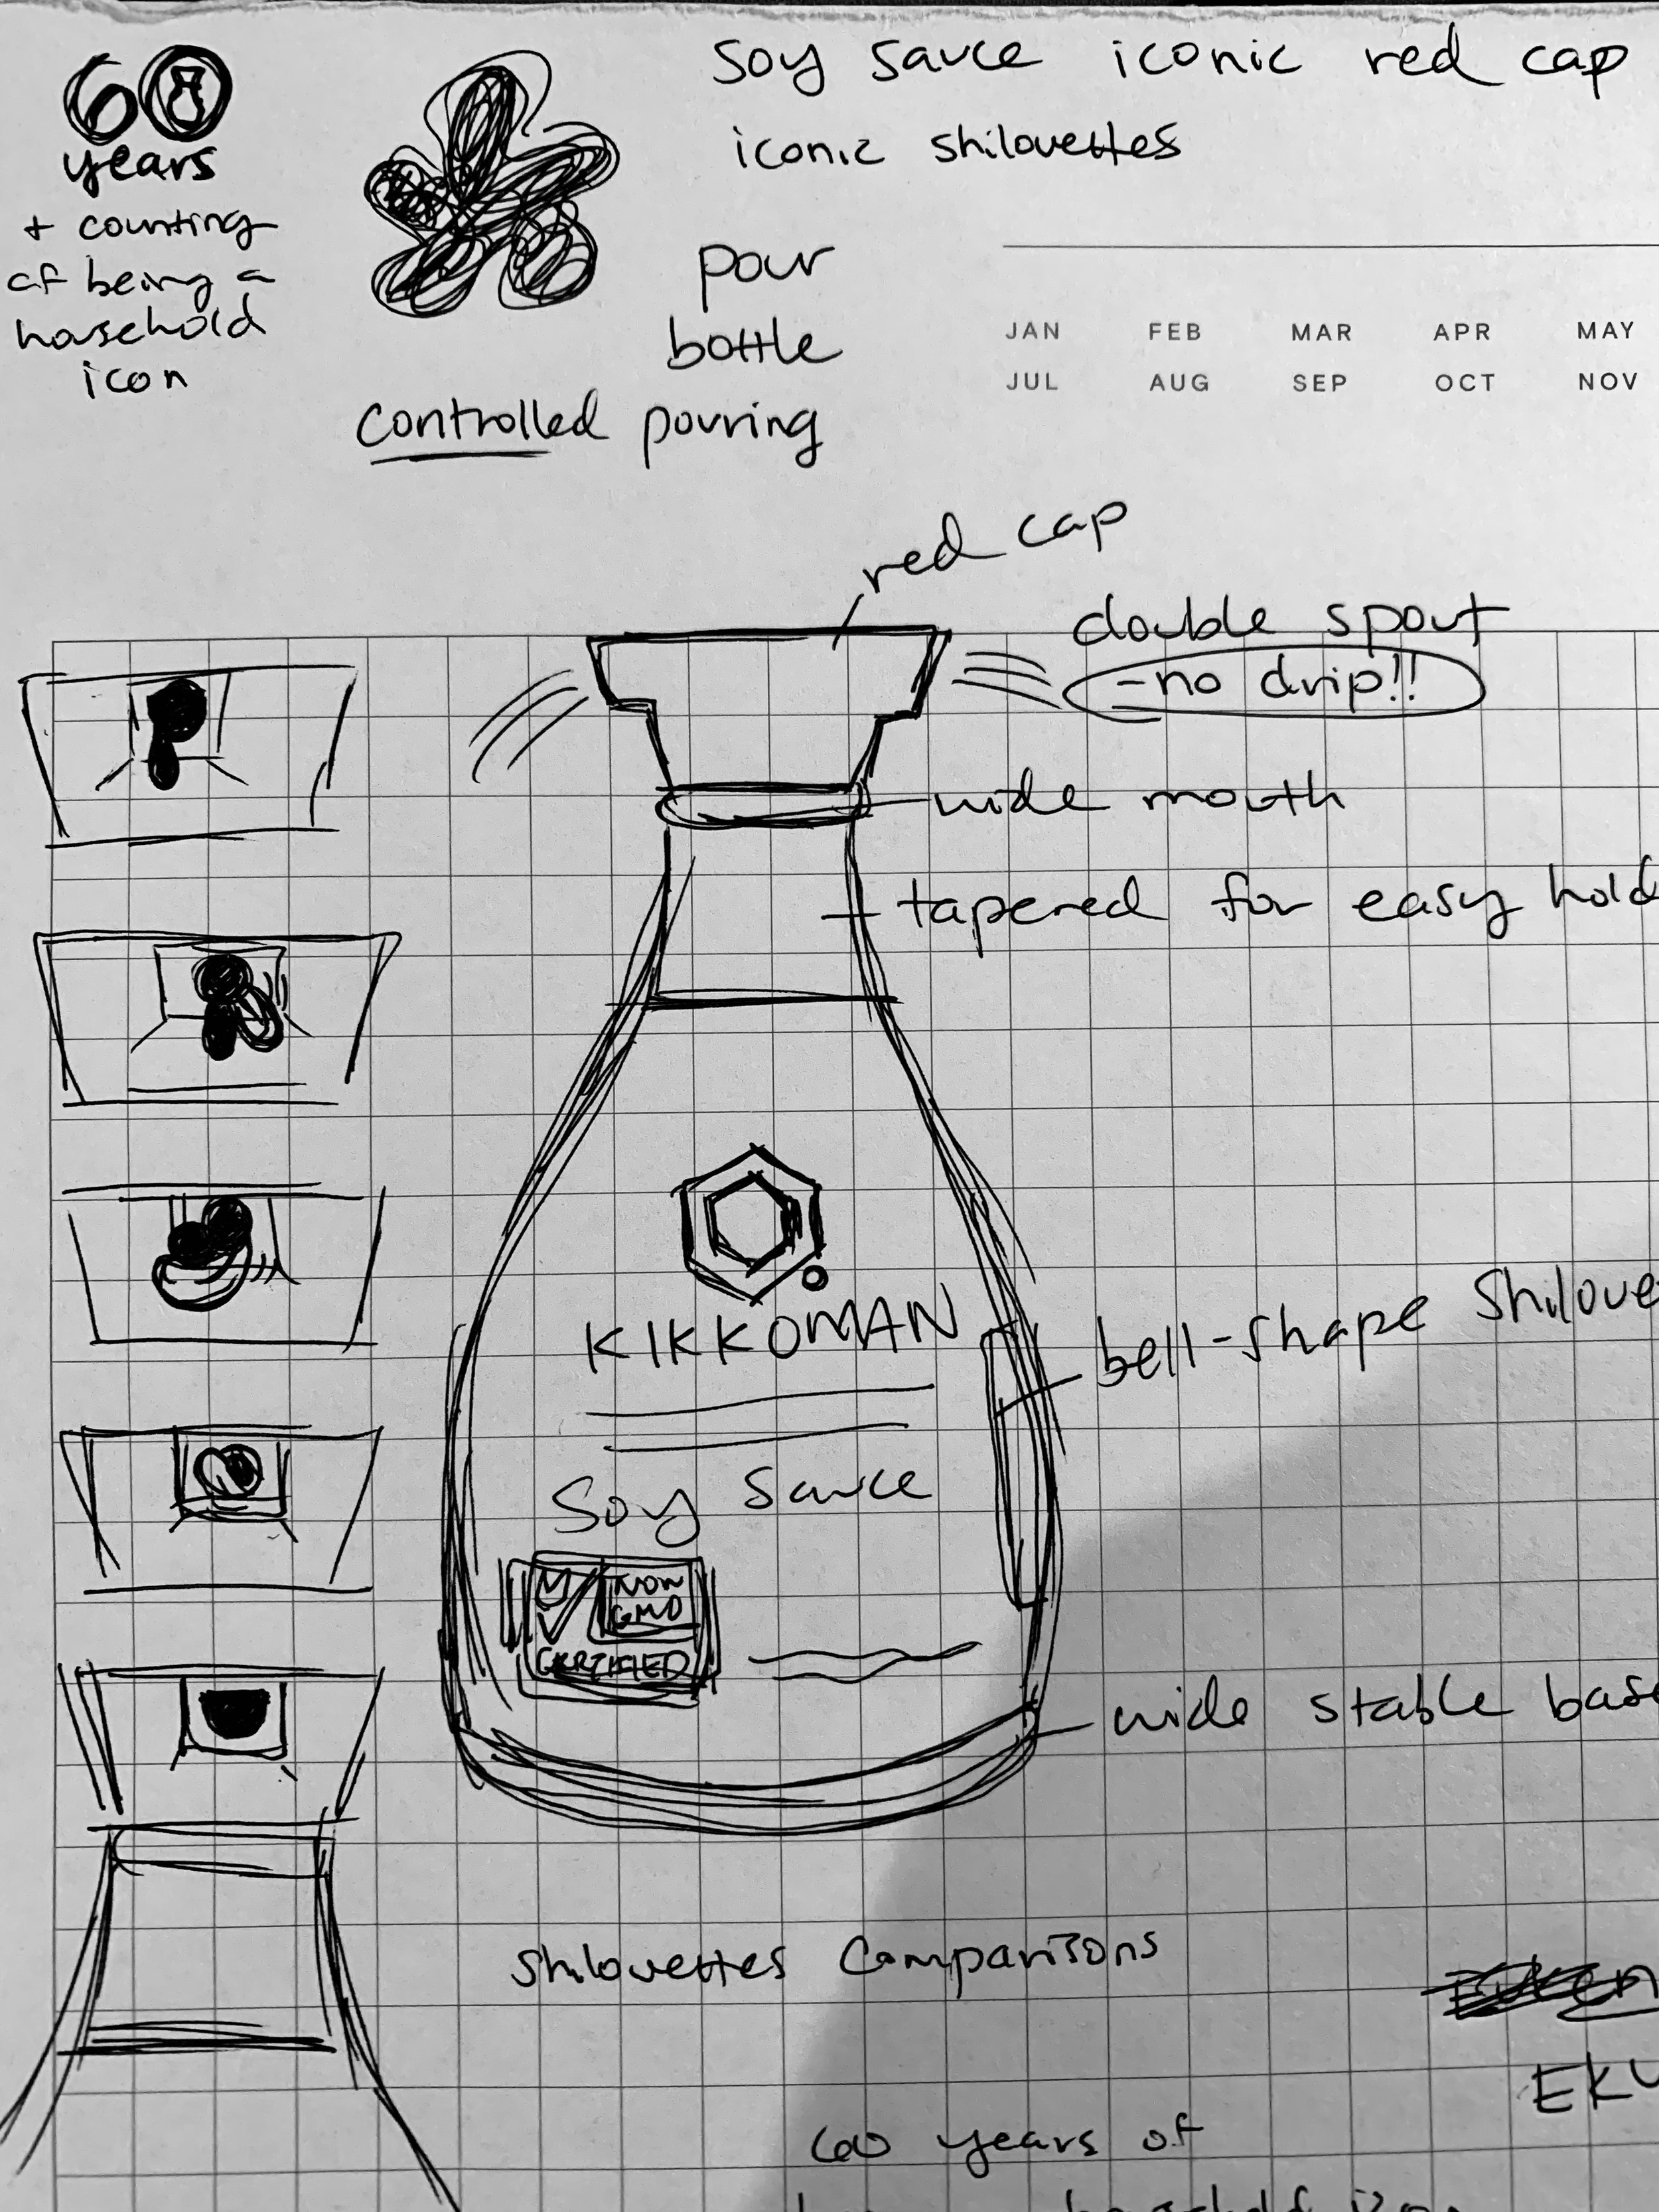 60
years
+ counting
of being a
household
icon
soy sauce iconic red cap
iconic shilouettes
pour
bottle
controlled pouring
JAN FEB MAR APR MAY
JUL AUG SEP OCT NOV
red cap
double spout
-no drip!!
wide mouth
tapered for easy hold
KIKKOMAN
bell-shape Shiloue
Soy Sauce
NON
GMO
CERTIFIED
wide stable base
Shilouettes Comparisons
EKU
60 years of